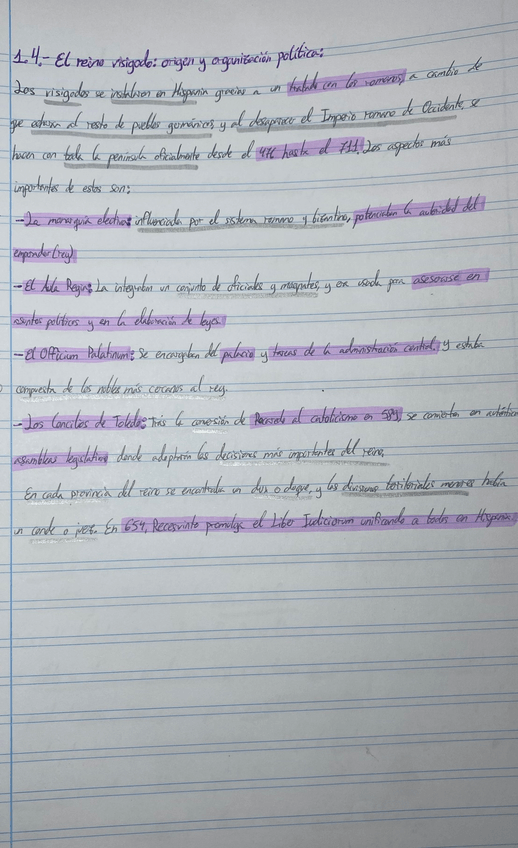 1.4.- El reino visigodo: origen y organización política:
Los visigodos se instalaron en Hispania gracias a un tratado con los romanos, a cambio de
que al resto de pueblos germánicos y al desaparecer el Imperio romano de Occidente, se
hacen con toda la península oficialmente desde el 476 hasta el 711. Los aspectos más
importantes de estos son:
- La monarquía electiva: influenciada por el sistema romano y bizantino, potenciaban la autoridad del
emperador (rey)
- El Aula Regia: La integraban un conjunto de oficiales y magnates, y era usada para asesorarse en
asuntos políticos y en la elaboración de leyes.
- El Officium Palatinum: Se encargaban del palacio y tareas de la administración central, y estaba
compuesta de los nobles más cercanos al rey.
- Los Concilios de Toledo: Tras la conversión de al catolicismo en 589, se convierten en auténtica
asamblea legislativa donde adoptarán las decisiones más importantes del reino.
En cada provincia del reino se encontraba un dux o duque, y las divisiones territoriales menores había
un conde o En 654, Recesvinto promulga el Liber Iudiciorum unificando a todos en Hispania.